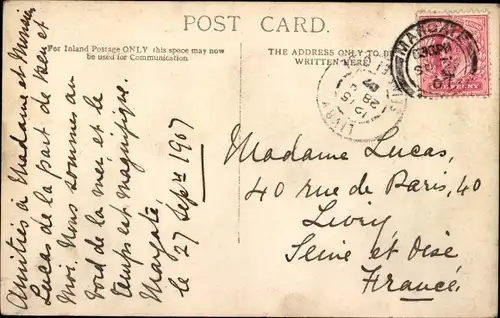 POST CARD.
For Inland Postage ONLY this space may now
be used for Communication
THE ADDRESS ONLY TO BE
WRITTEN HERE
Amitiés à Madame et Monsieur
Lucas de la part de Ken et
Moi. Nous sommes au
bord de la mer et le
temps est magnifique
Margate
le 27 Septr 1907
Madame Lucas,
40 rue de Paris, 40
Livry
Seine et Oise
France
MARGATE